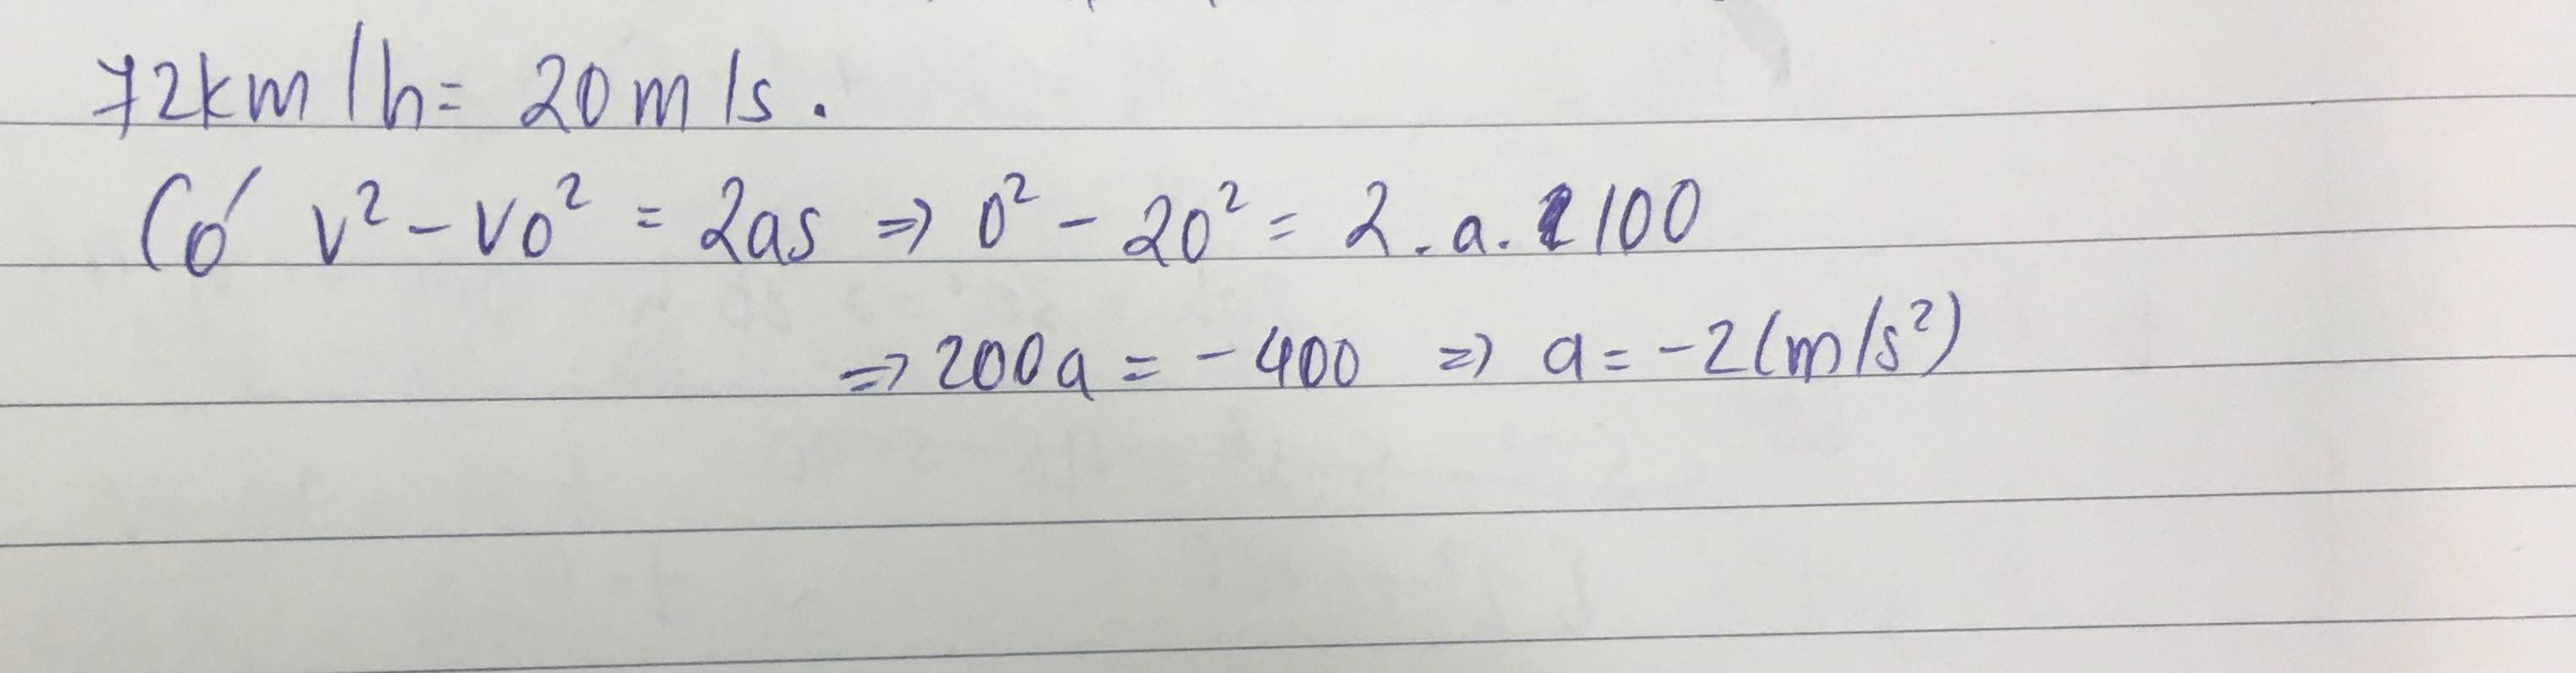 72km/h = 20m/s.
Có v² - vo² = 2as => 0² - 20² = 2.a.100
=> 200a = -400 => a = -2(m/s²)